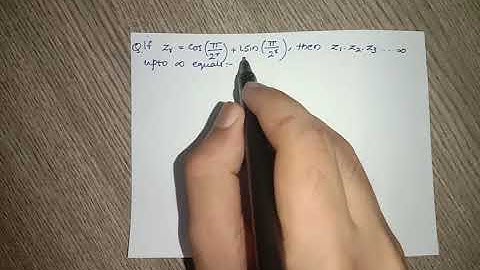 Q. If Zr = cos(π/2^r) + i sin(π/2^r), then Z1. Z2. Z3 ... ∞
upto ∞ equals:-